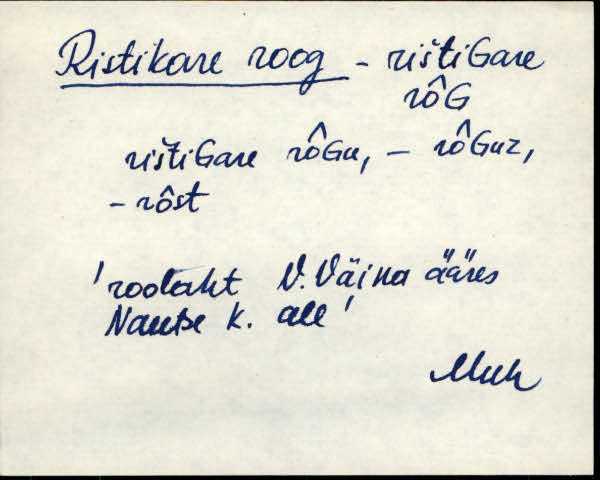 Ristikare roog – rištiGare
rôG
rištiGare rôGu, – rôGuz,
– rôst
'roolaht V. Väina ääres
Nautse k. all'
Muh